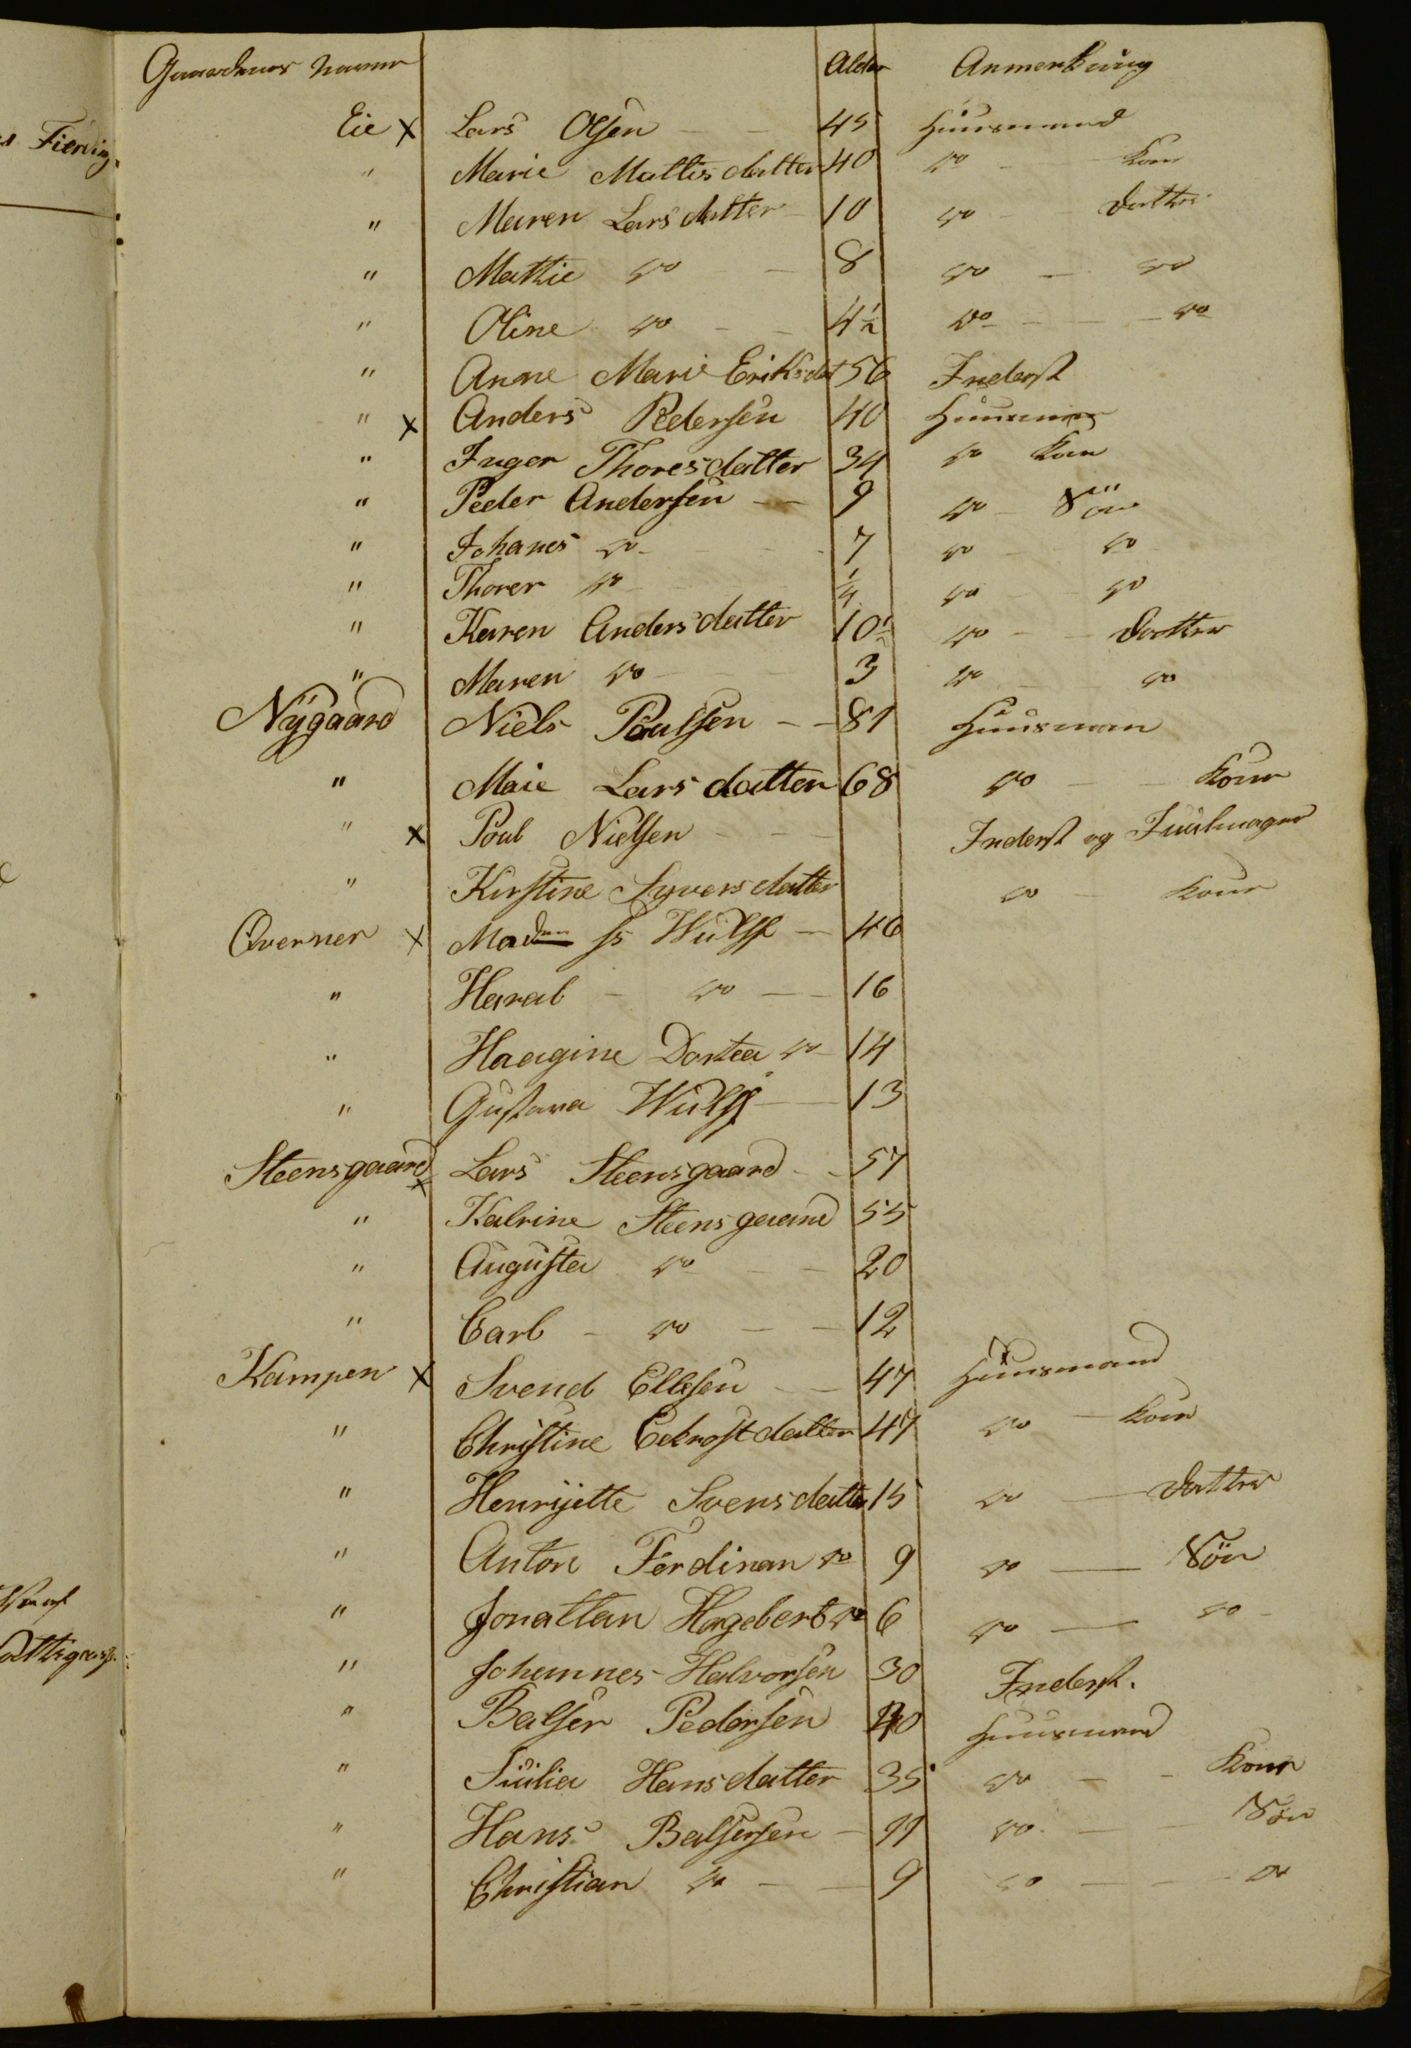 Gaardenes Navne Alder Anmerkning
Eie x Lars Olsen - - 45 Huusmand
" Marie Mattisdatter 40 do - Kone
" Maren Larsdatter - 10 do - Datter
" Mathie do - 8 do - do
" Oline do - - 4½ do - - do
" Anne Marie Eriksdat 56 Inderst
" x Anders Pedersen 40 Huusman
" Inger Thoresdatter 34 do Kone
" Peder Andersen - - 9 do - Søn
" Johanes do - - 7 do - do
" Thorer do - ¼ do - do
" Karen Andersdatter 10½ do - - Datter
" Maren do - - 3 do - - do
Nÿgaard Niels Poulsen - - 81 Huusman
" Maie Larsdatter 68 do - - Kone
" x Poul Nielsen - - - Inderst og
" Kirstine Syversdatter do - Kone
Overner x Madm Wulff - 46
" Haral - do - - 16
" Haagine Dortea do - 14
" Gustava Wulff - - 13
Steensgaard x Lars Steensgaard - - 57
" Katrine Steensgaard 55
" Augusta do - - 20
" Carl - do - - 12
Kampen x Svend Ellesen - - 47 Huusmand
" Christine datter 47 do - Kone
" Henrijette Svensdatter 15 do - Datter
" Anton Ferdinan do 9 do - Søn
" Jonattan Hagebert do 6 do - do -
" Johannes Halvorsen 30 Inderst.
" Balser Pedersen 40 Huusmand
" Juulia Hansdatter 35 do - - Kone
" Hans Balsersen - 11 do - - Søn
" Christian do - - 9 do - - - do